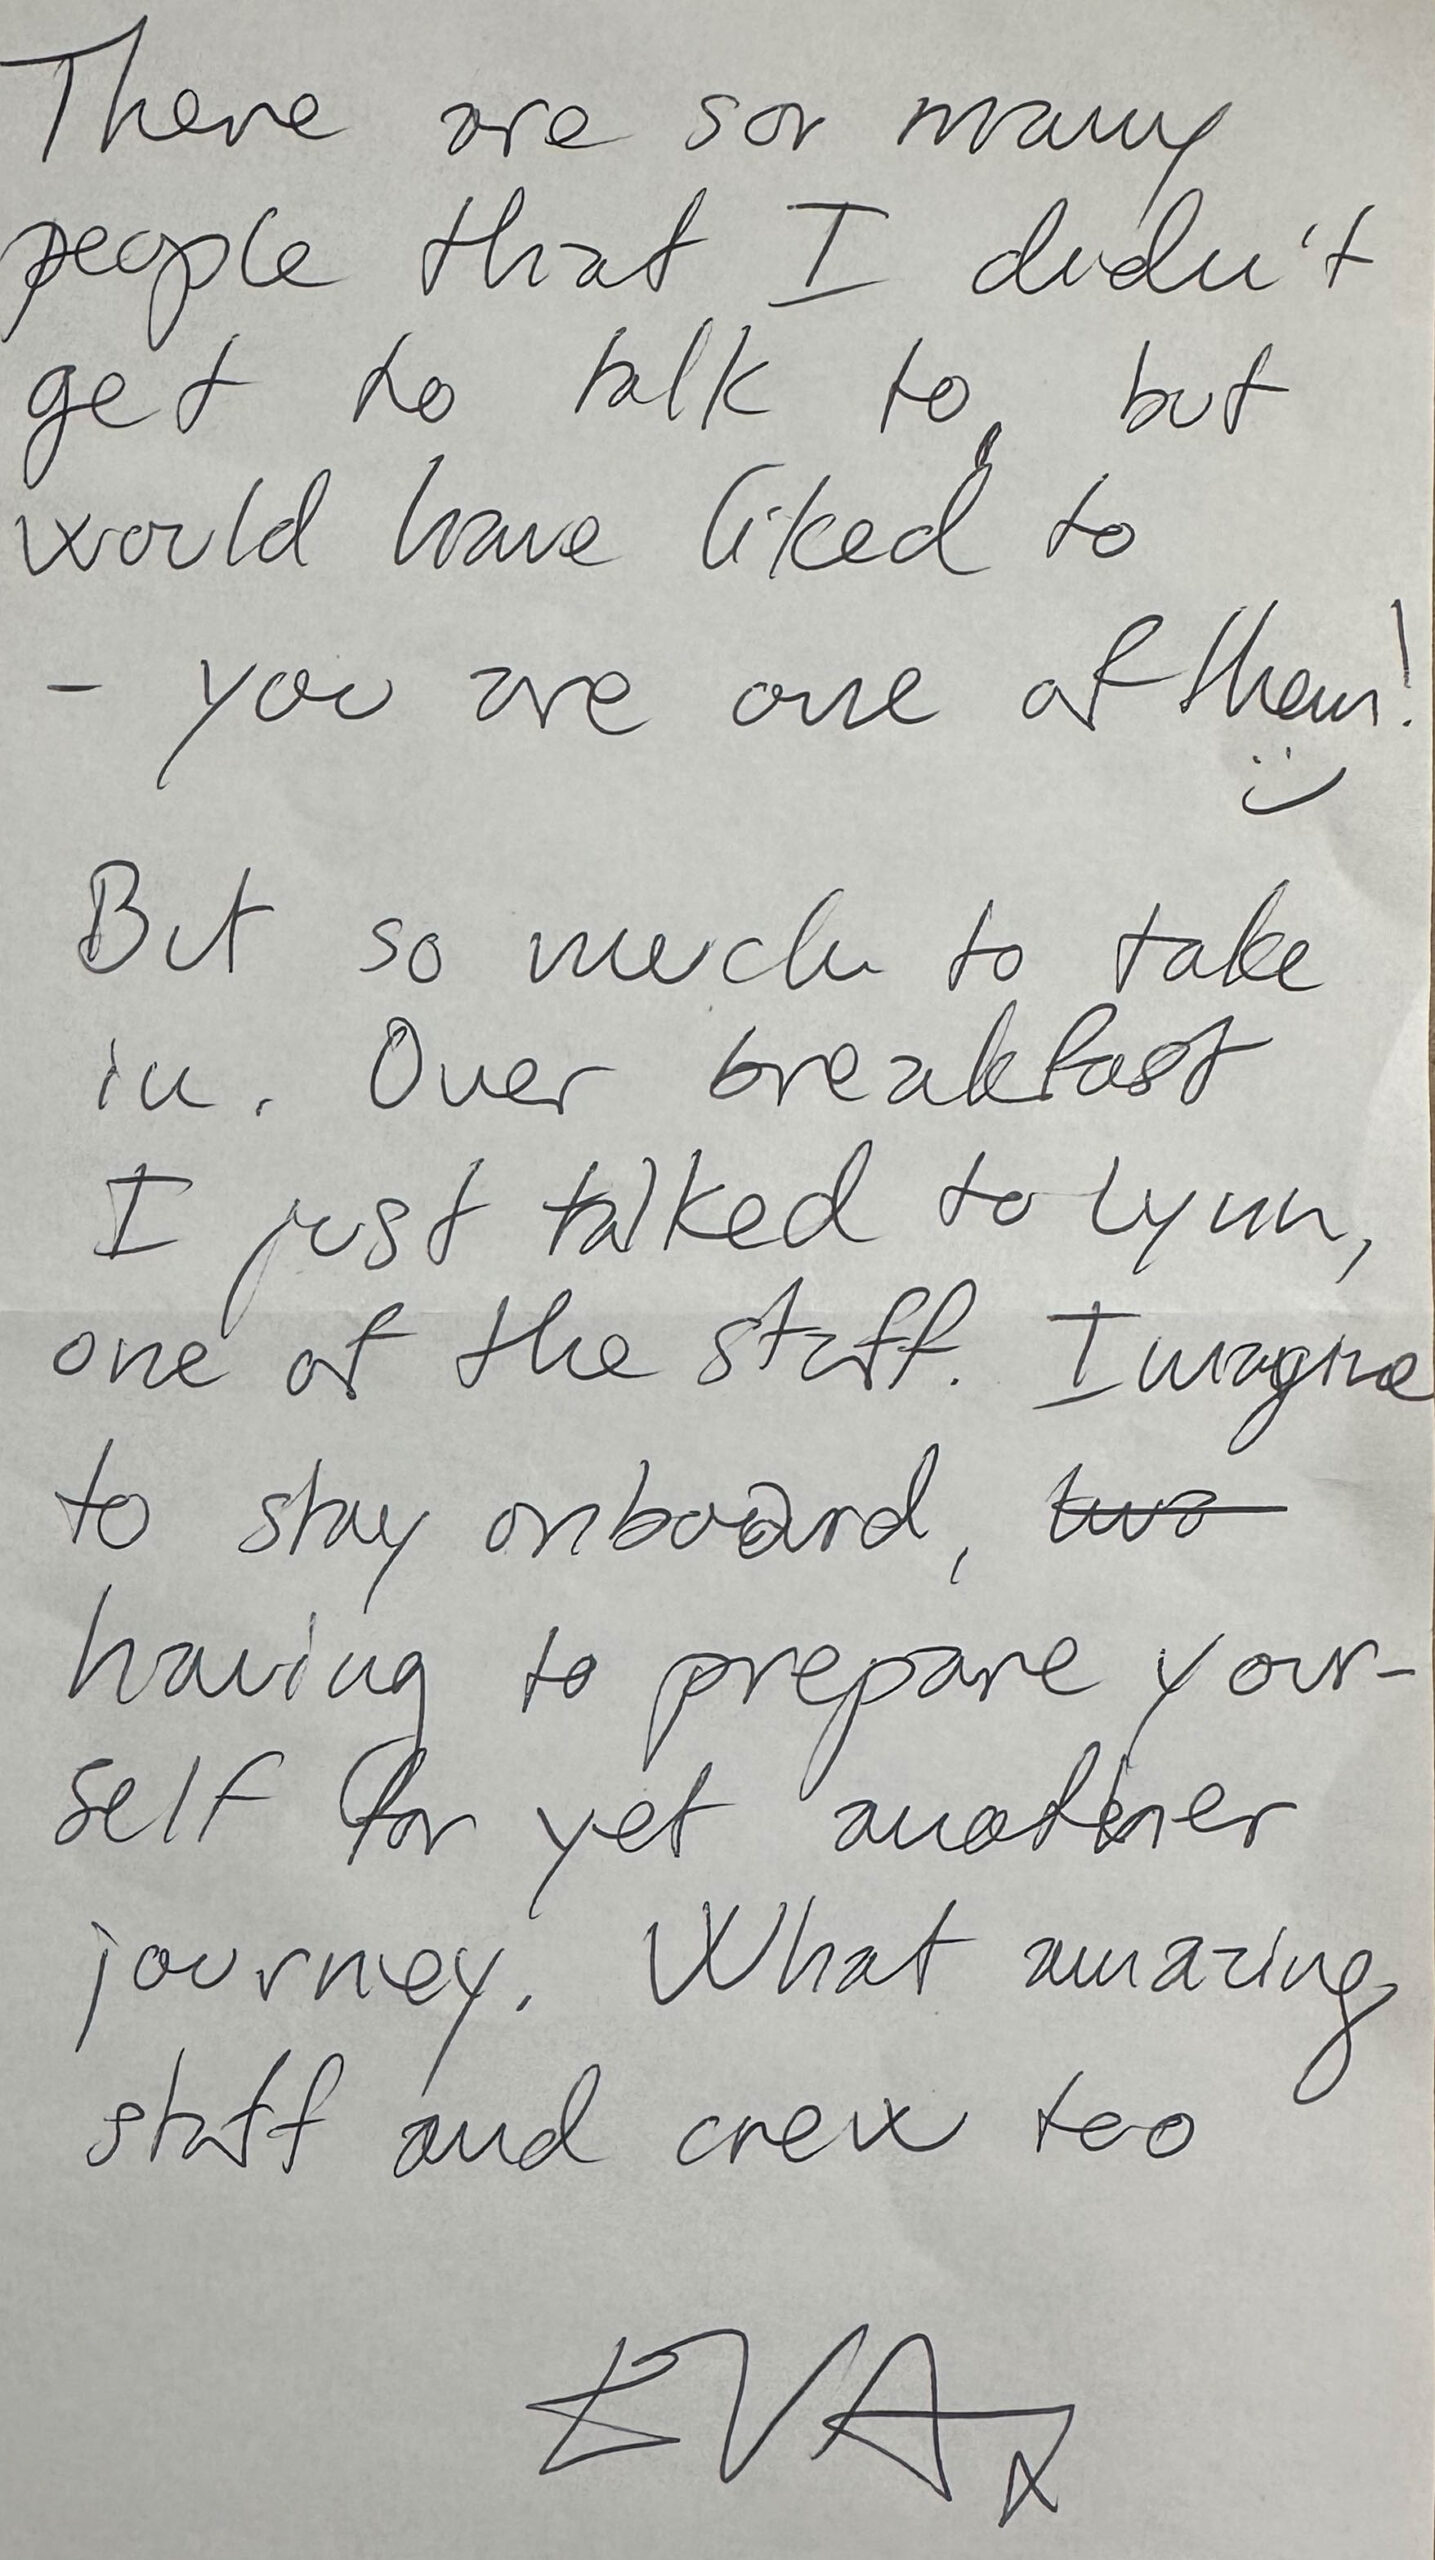 There are so many
people that I didn't
get to talk to, but
would have liked to
- you are one of them!
:)
But so much to take
in. Over breakfast
I just talked to Lynn,
one of the staff. Imagine
to stay onboard, two
having to prepare your-
self for yet another
journey. What amazing
staff and crew too
EVA x